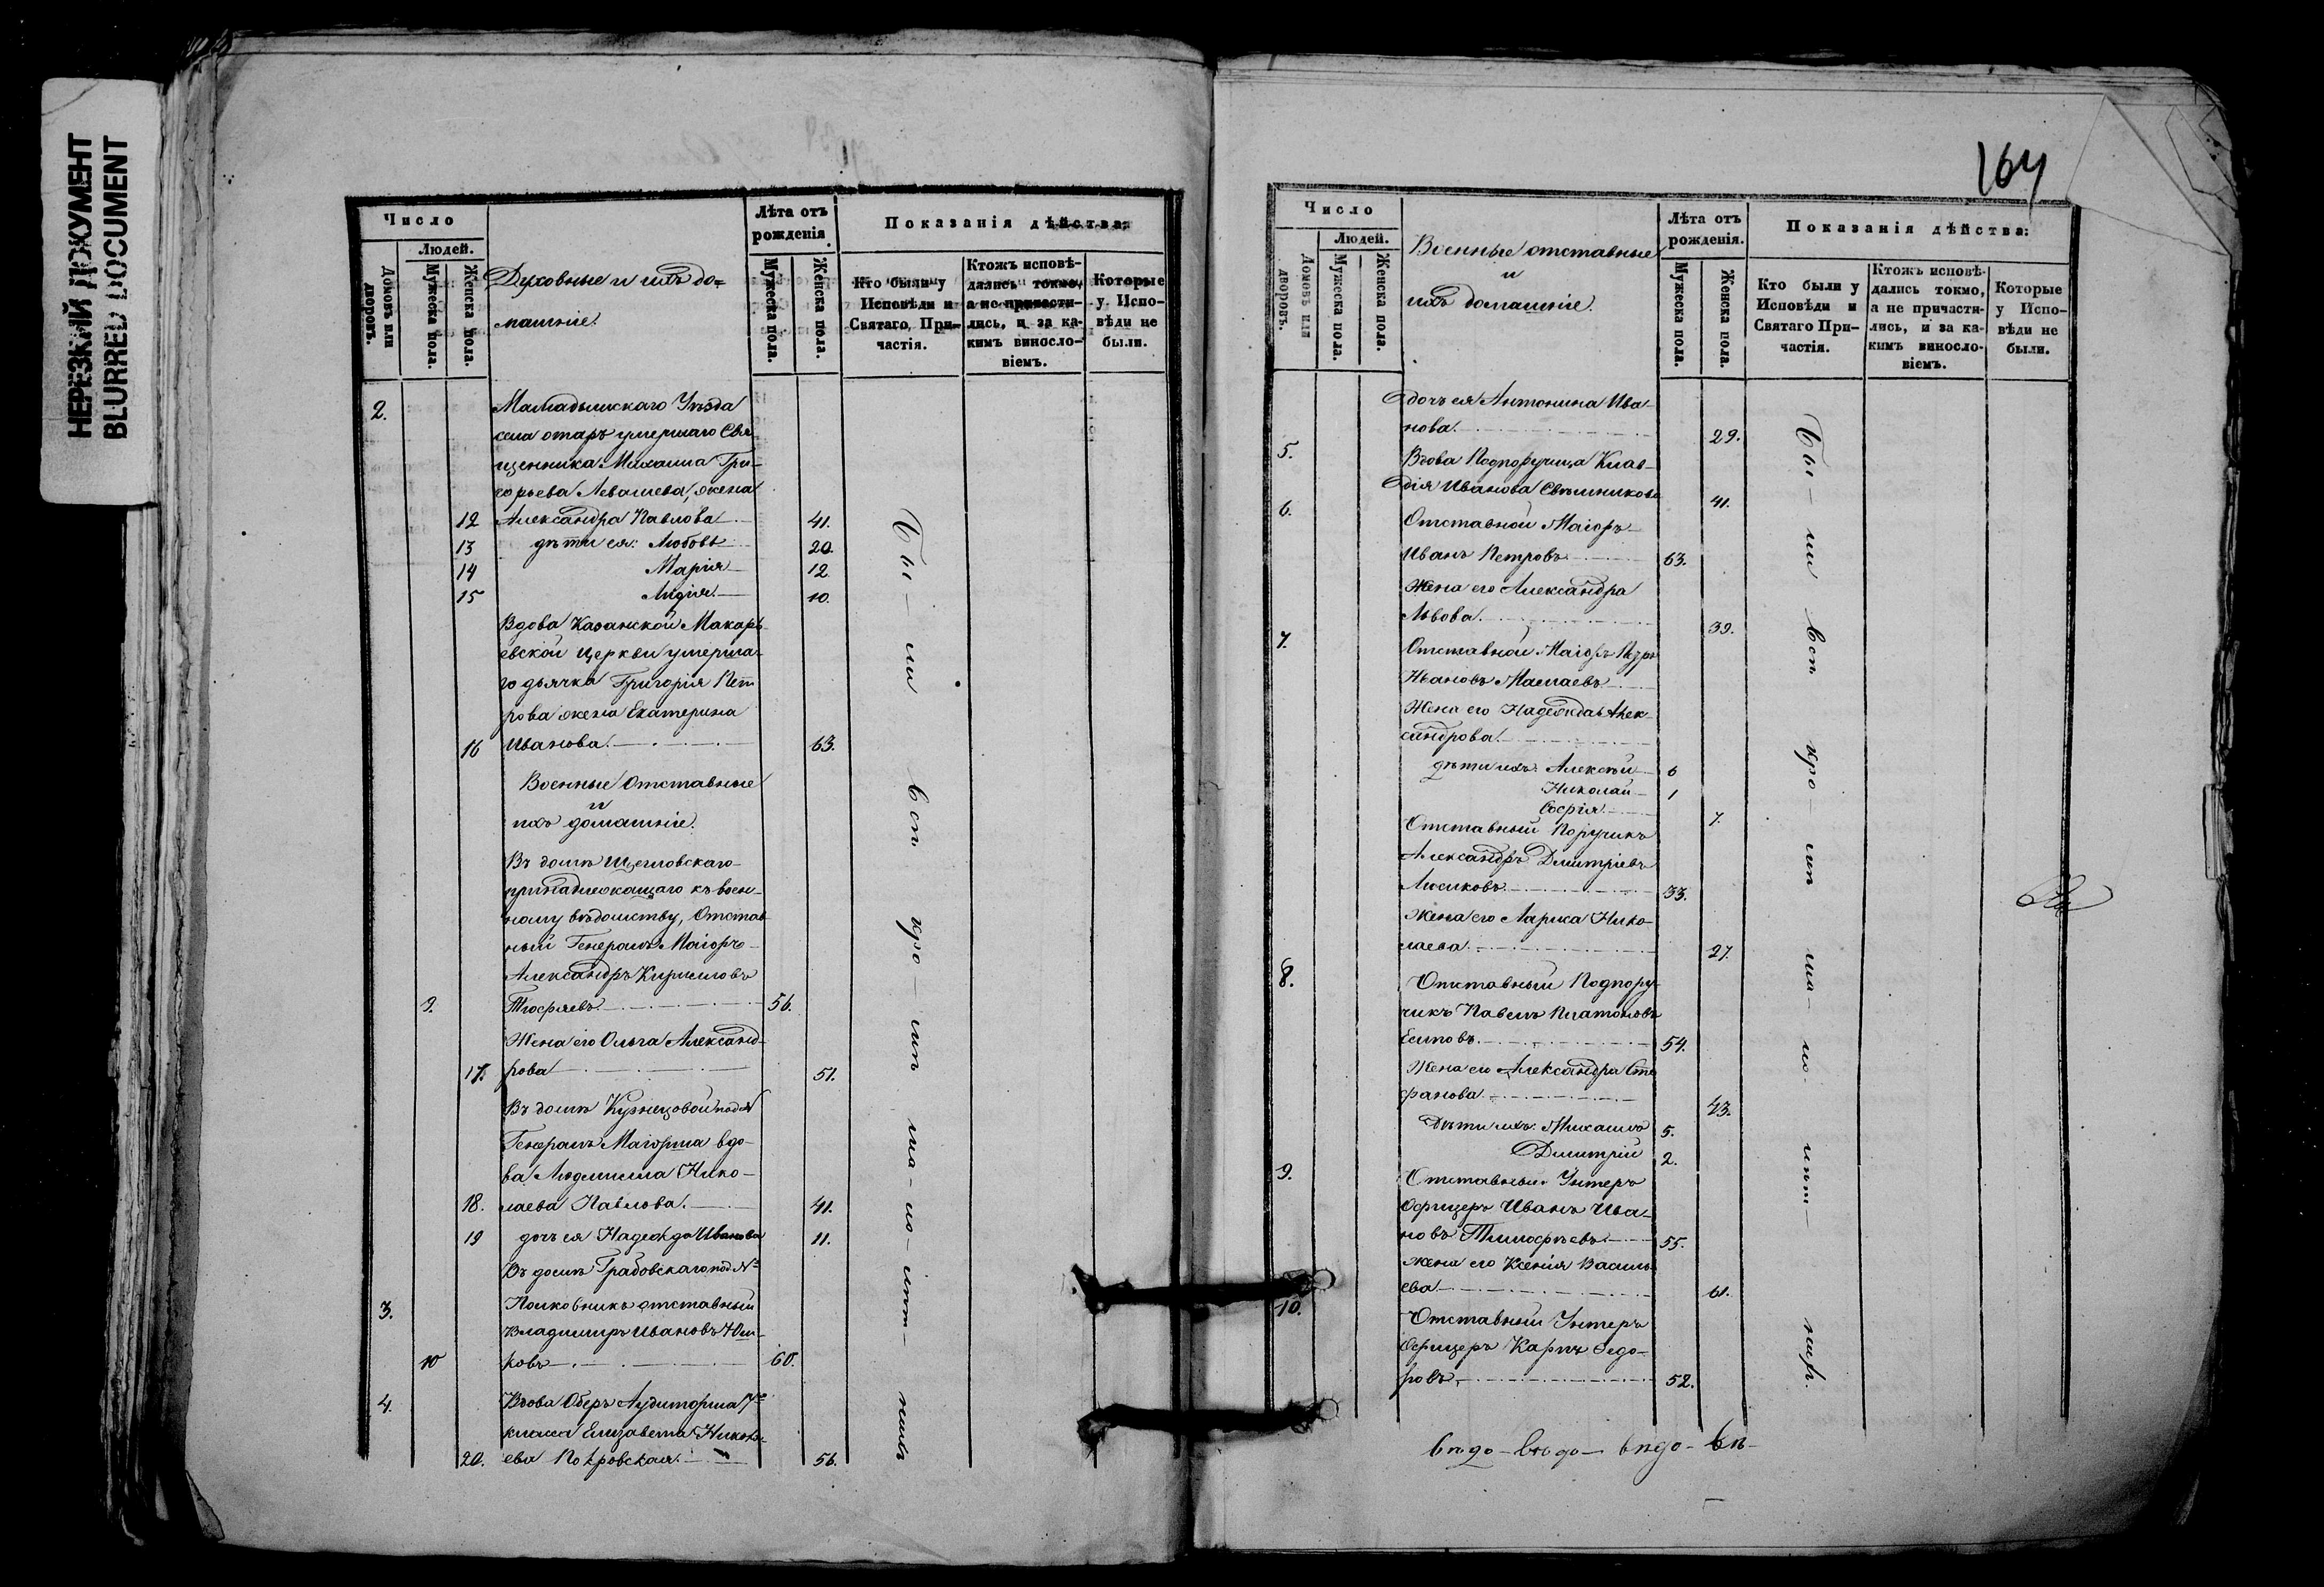 НЕРЕЗКИЙ ДОКУМЕНТ
BLURRED DOCUMENT
Число
Людей.
Домовъ или дворовъ.
Мужеска пола.
Женска пола.
Духовные и ихъ до=
машніе.
Лѣта отъ рожденія
Мужеска пола.
Женска пола.
Показанія дѣйства:
Кто были у Исповѣди и Святаго При-частія.
Ктожъ исповѣ-дались токмо, а не причасти-лись, и за ка-кимъ винословіемъ.
Которые у Испо-вѣди не были.
2. Мамадышскаго Уѣзда
села умершаго Свя
щенника Михаила Гри-
горьева Левашева, жена
12 Александра Павлова 41.
13 дѣти ея: Любовь 20.
14 Марія 12
15 Лидія 10.
Вдова Казанской Макарь-
евской Церкви умерша-
го дьячка Григорія Пет
рова жена Екатерина
16 Иванова. 63.
Военные Отставные
и
ихъ домашніе.
Въ домѣ Щегловскаго
принадлежащаго къ воен-
ному вѣдомству, Отстав
ный Генералъ Маіоръ
Александръ Кирилловъ
9. 56.
Жена его Ольга Александ-
17. рова 51.
Въ домѣ Кузнецовой под №
Генералъ Маіорша вдо-
ва Людмилла Нико-
18. лаева Павлова. 41.
19 дочь ея Надежда Иванова 11.
Въ домѣ Грабовскаго под №
3. Полковникъ отставный
Владимиръ Ивановъ Юш-
10 ковъ 60.
4. Вдова Оберъ Аудиторша 7го
класса Елизавета Никола-
20. ева Покровская. 56.
Бы - ли всѣ кро - мѣ ма - ло - лѣт - нихъ
164
Число
Людей.
Домовъ или дворовъ.
Мужеска пола.
Женска пола.
Военные отставные
и
ихъ домашніе.
Лѣта отъ рожденія.
Мужеска пола.
Женска пола.
Показанія дѣйства:
Кто были у Исповѣди и Святаго При-частія.
Ктожъ исповѣ-дались токмо, а не причасти-лись, и за ка-кимъ винословіемъ.
Которые у Испо-вѣди не были.
дочь ея Антонина Ива-
нова. 29.
5. Вдова Подпоручица Клав-
дія Иванова 41.
6. Отставной Маіоръ
Иванъ Петровъ 63.
Жена его Александра
Львова. 39.
7. Отставной Маіоръ Петръ
Ивановъ Мамаевъ
Жена его Надежда Алек-
сандрова.
дѣти ихъ: Алексѣй 6
Николай 1
Софія. 7.
Отставный Поручикъ
Александръ Дмитріевъ
33.
Жена его Лариса Нико-
лаева. 27.
8. Отставный Подпору-
чикъ Павелъ Платоновъ
Есиповъ. 54.
Жена его Александра Сте
фанова. 43.
Дѣти ихъ: Михаилъ 5.
Димитрій 2.
9. Отставный Унтеръ
Офицеръ Иванъ Ива-
новъ Тимофѣевъ 55.
Жена его Ксенія Василь
ева 61.
10. Отставный Унтеръ
Офицеръ Карпъ Федо-
ровъ. 52.
Бы - ли всѣ кро - мѣ ма - ло - лѣт - нихъ.
вѣдо - вѣдо - вѣдо - вѣ-